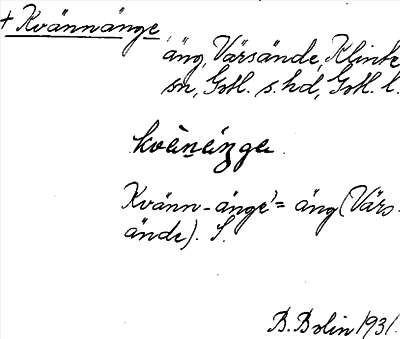 + Kvännänge,
äng, Värsände, Klinte
sn, Gotl. s. hd, Gotl. l.
kvä̀nɛ́ŋgɛ.
Kvänn-änge' = äng (Värs-
ände). S.
B. Bolin 1931.